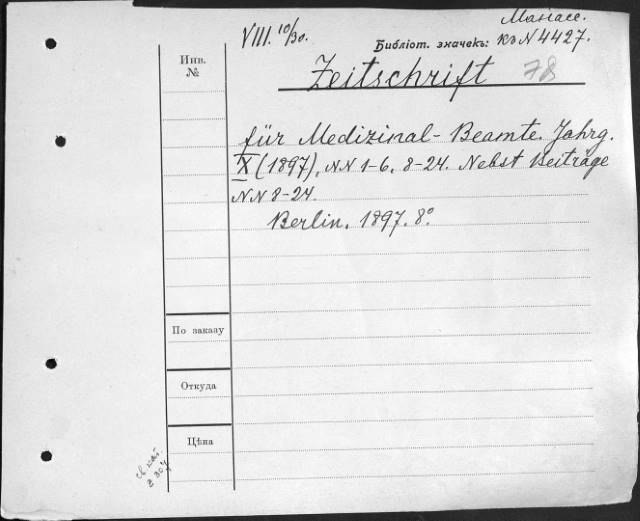 VIII. 10/30.
Библіот. значекъ: къ N 4427.
Инв.
№
Zeitschrift 78
für Medizinal-Beamte. Jahrg.
X (1897), NN 1-6, 8-24. Nebst Beiträge
NN 8-24.
Berlin. 1897. 8°.
По заказу
Откуда
Цѣна